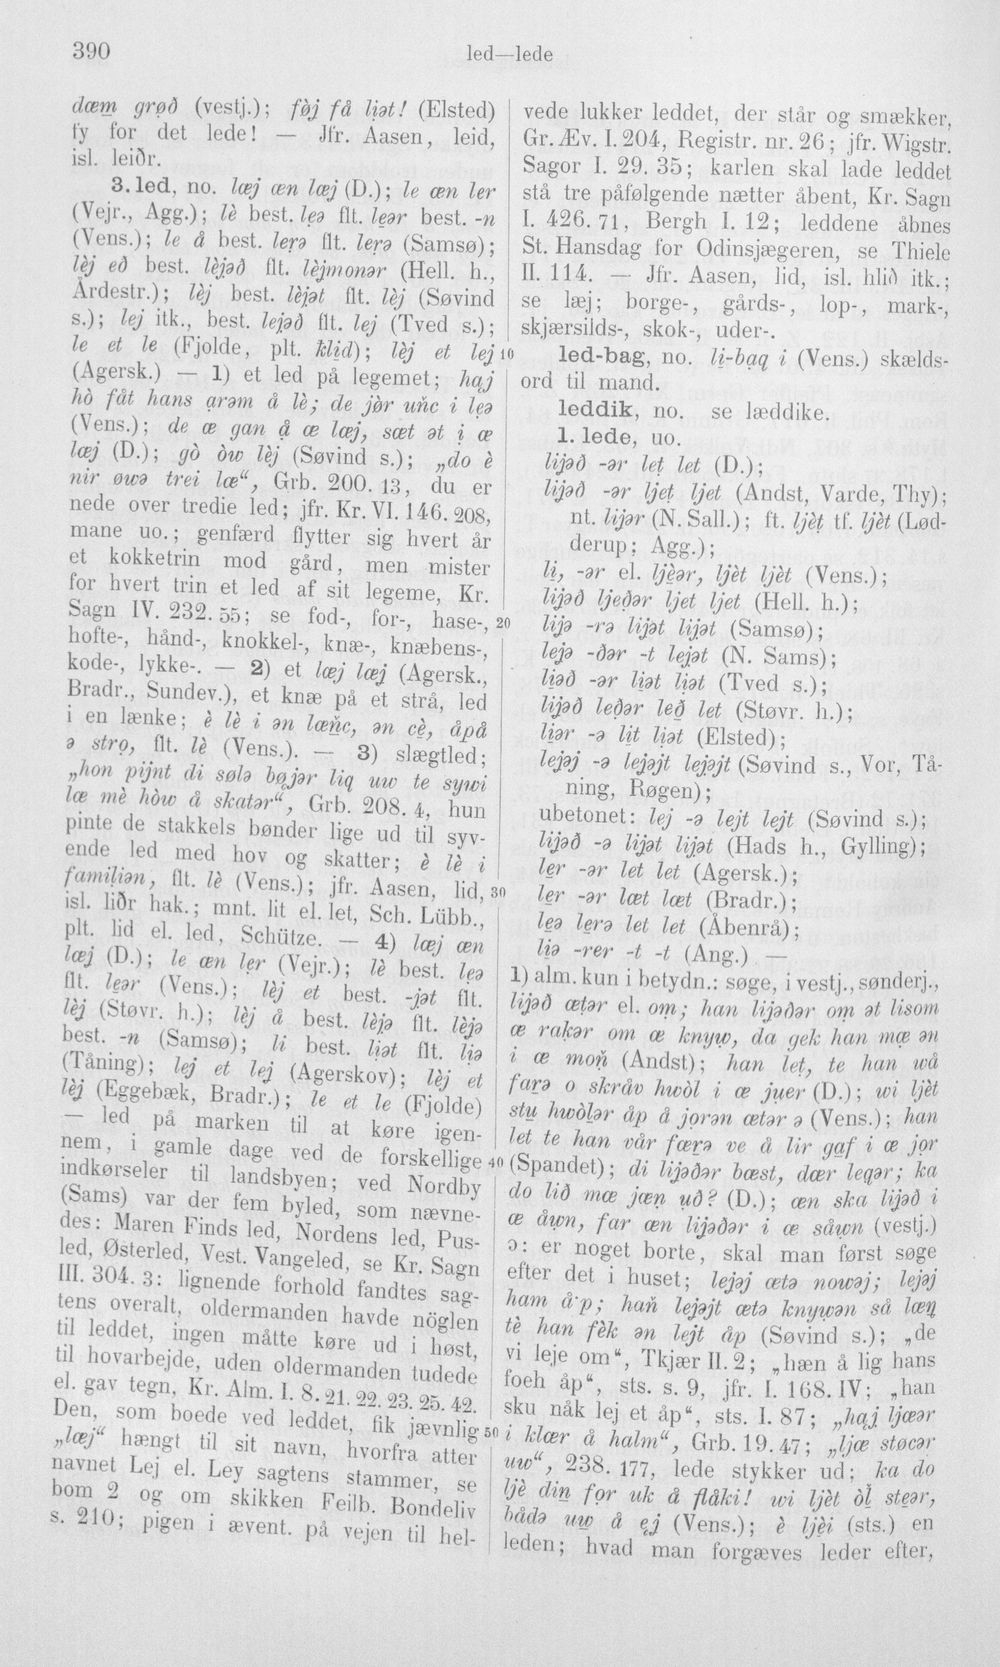 390
led—lede
dæm grøð (vestj.); føj få liət! (Elsted)
fy for det lede! — Jfr. Aasen, leid,
isl. leiðr.
3. led, no. læj æn læj (D.); le æn ler
(Vejr., Agg.); lè best. leə flt. leər best. -n
(Vens.); le å best. lerə flt. lerə (Samsø);
lèj eð best. lèjəð flt. lèjmonər (Hell. h.,
Årdestr.); lèj best. lèjət flt. lèj (Søvind
s.); lej itk., best. lejəð flt. lej (Tved s.);
le et le (Fjolde, plt. klid); lèj et lej
(Agersk.) — 1) et led på legemet; haj
hò fåt hans arəm å lè; de jør uńc i leə
(Vens.); de æ gan å æ læj, sæt ət i æ
læj (D.); gò òw lèj (Søvind s.); „do è
nir øwə trei læ“, Grb. 200. 13, du er
nede over tredie led; jfr. Kr. VI. 146. 208,
mane uo.; genfærd flytter sig hvert år
et kokketrin mod gård, men mister
for hvert trin et led af sit legeme, Kr.
Sagn IV. 232. 55; se fod-, for-, hase-,
hofte-, hånd-, knokkel-, knæ-, knæbens-,
kode-, lykke-. — 2) et læj læj (Agersk.,
Bradr., Sundev.), et knæ på et strå, led
i en lænke; è lè i ən læńc, ən cè, åpå
ə stro, flt. lè (Vens.). — 3) slægtled;
„hon pijnt di sølə bøjər liq uw te sywi
læ mè hòw å skatər“, Grb. 208. 4, hun
pinte de stakkels bønder lige ud til syv-
ende led med hov og skatter; è lè i
familiən, flt. lè (Vens.); jfr. Aasen, lid,
isl. liðr hak.; mnt. lit el. let, Sch. Lübb.,
plt. lid el. led, Schütze. — 4) læj æn
læj (D.); le æn ler (Vejr.); lè best. leə
flt. leər (Vens.); lèj et best. -jət flt.
lèj (Støvr. h.); lèj å best. lèjə flt. lèjə
best. -n (Samsø); li best. liət flt. liə
(Tåning); lej et lej (Agerskov); lèj et
lèj (Eggebæk, Bradr.); le et le (Fjolde)
— led på marken til at køre igen-
nem, i gamle dage ved de forskellige
indkørseler til landsbyen; ved Nordby
(Sams) var der fem byled, som nævne-
des: Maren Finds led, Nordens led, Pus-
led, Østerled, Vest. Vangeled, se Kr. Sagn
III. 304. 3: lignende forhold fandtes sag-
tens overalt, oldermanden havde nöglen
til leddet, ingen måtte køre ud i høst,
til hovarbejde, uden oldermanden tudede
el. gav tegn, Kr. Alm. I. 8. 21. 22. 23. 25. 42.
Den, som boede ved leddet, fik jævnlig
„læj“ hængt til sit navn, hvorfra atter
navnet Lej el. Ley sagtens stammer, se
bom 2 og om skikken Feilb. Bondeliv
s. 210; pigen i ævent. på vejen til hel-
10
20
30
40
50
vede lukker leddet, der står og smækker,
Gr. Æv. I. 204, Registr. nr. 26; jfr. Wigstr.
Sagor I. 29. 35; karlen skal lade leddet
stå tre påfølgende nætter åbent, Kr. Sagn
I. 426. 71, Bergh I. 12; leddene åbnes
St. Hansdag for Odinsjægeren, se Thiele
II. 114. — Jfr. Aasen, lid, isl. hlið itk.;
se læj; borge-, gårds-, lop-, mark-,
skjærsilds-, skok-, uder-.
led-bag, no. li-baq i (Vens.) skælds-
ord til mand.
leddik, no. se læddike.
1. lede, uo.
lijəð -ər let let (D.);
lijəð -ər ljet ljet (Andst, Varde, Thy);
nt. lijər (N. Sall.); ft. ljèt tf. ljèt (Lød-
derup; Agg.);
li, -ər el. ljèər, ljèt ljèt (Vens.);
lijəð ljeðər ljet ljet (Hell. h.);
lijə -rə lijət lijət (Samsø);
lejə -ðər -t lejət (N. Sams);
liəð -ər liət liət (Tved s.);
lijəð leðər leð let (Støvr. h.);
liər -ə lit liət (Elsted);
lejəj -ə lejəjt lejəjt (Søvind s., Vor, Tå-
ning, Røgen);
ubetonet: lej -ə lejt lejt (Søvind s.);
lijəð -ə lijət lijət (Hads h., Gylling);
ler -ər let let (Agersk.);
ler -ər læt læt (Bradr.);
leə lerə let let (Åbenrå);
liə -rer -t -t (Ang.) —
1) alm. kun i betydn.: søge, i vestj., sønderj.,
lijəð ætər el. om; han lijəðər om ət lisom
æ rakər om æ knyw, da gek han mæ ən
i æ moń (Andst); han let, te han wå
farə o skråv hwòl i æ juer (D.); wi ljèt
stu hwòlər åp å jorən ætər ə (Vens.); han
let te han vår færə ve å lir gaf i æ jor
(Spandet); di lijəðər bæst, dær leqər; ka
do lið mæ jæn uð? (D.); æn ska lijəð i
æ åwn, far æn lijəðər i æ såwn (vestj.)
ɔ: er noget borte, skal man først søge
efter det i huset; lejəj ætə nowəj; lejəj
ham å·p; hań lejəjt ætə knywən så læn
tè han fèk ən lejt åp (Søvind s.); „de
vi leje om“, Tkjær II. 2; „hæn å lig hans
foeh åp“, sts. s. 9, jfr. I. 168. IV; „han
sku nåk lej et åp“, sts. I. 87; „haj ljæər
i klær å halm“, Grb. 19. 47; „ljæ støcər
uw“, 238. 177, lede stykker ud; ka do
ljè din for uk å flåki! wi ljèt òl steər,
bådə uw å ej (Vens.); è ljèi (sts.) en
leden; hvad man forgæves leder efter,